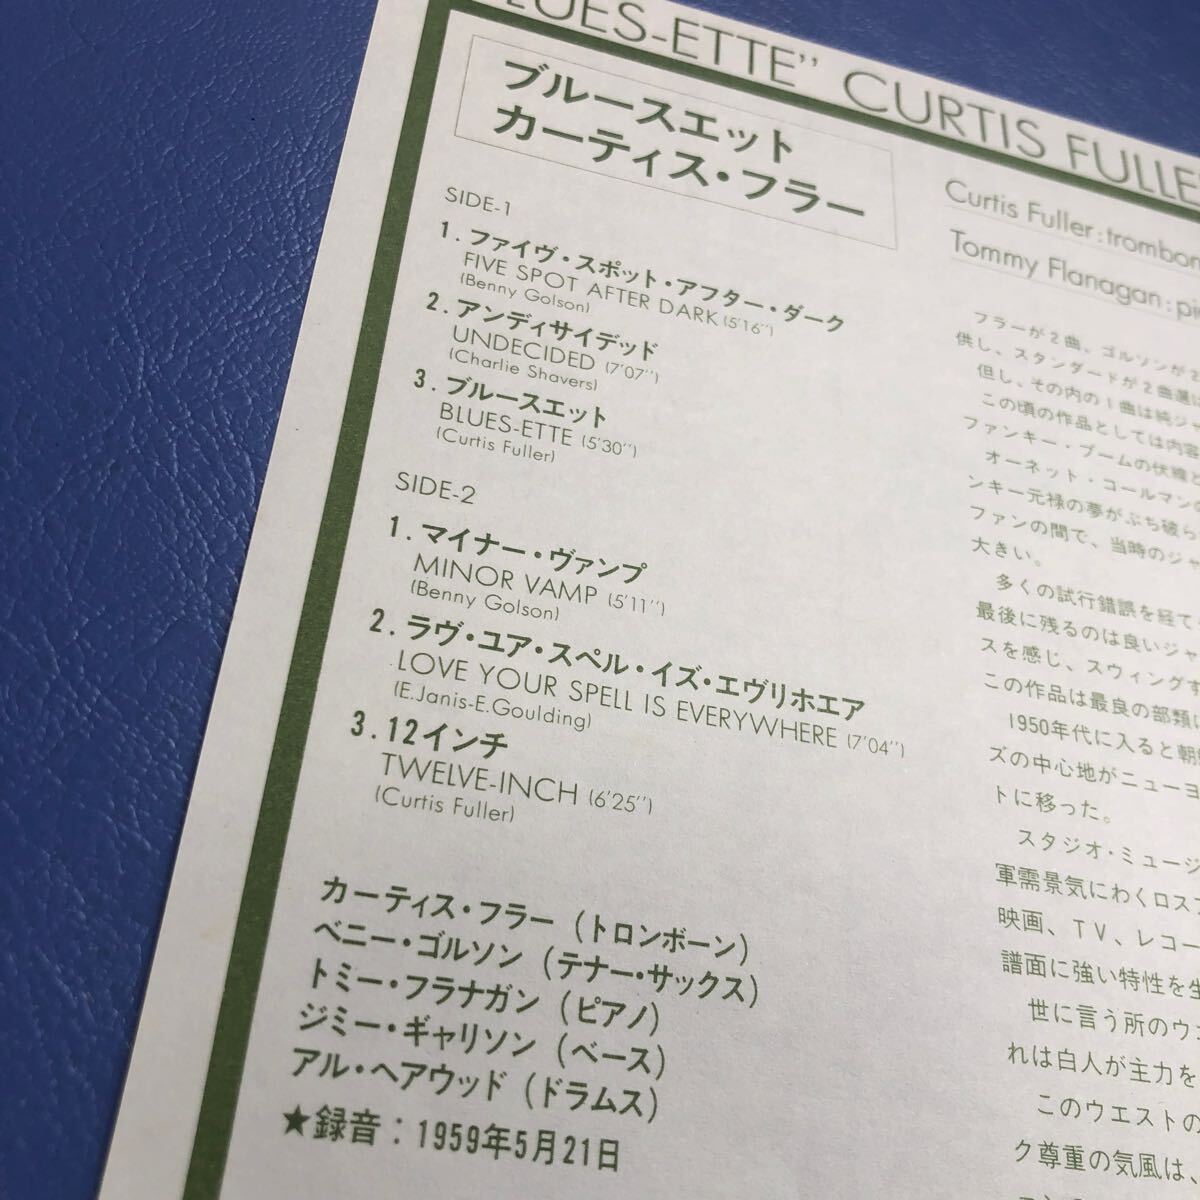 LUES-ETTE" CURTIS FULLE
ブルースエット
カーティス・フラー
SIDE-1
1. ファイヴ・スポット・アフター・ダーク
FIVE SPOT AFTER DARK (5'16'')
(Benny Golson)
2. アンディサイデッド
UNDECIDED (7'07'')
(Charlie Shavers)
3. ブルースエット
BLUES-ETTE (5'30'')
(Curtis Fuller)
SIDE-2
1. マイナー・ヴァンプ
MINOR VAMP (5'11'')
(Benny Golson)
2. ラヴ・ユア・スペル・イズ・エヴリホエア
LOVE YOUR SPELL IS EVERYWHERE (7'04'')
(E.Janis-E.Goulding)
3. 12インチ
TWELVE-INCH (6'25'')
(Curtis Fuller)
カーティス・フラー (トロンボーン)
ベニー・ゴルソン (テナー・サックス)
トミー・フラナガン (ピアノ)
ジミー・ギャリソン (ベース)
アル・ヘアウッド (ドラムス)
★録音：1959年5月21日
Curtis Fuller:trombon
Tommy Flanagan:pi
フラーが2曲、ゴルソンが2
供し、スタンダードが2曲選
但し、その内の1曲は純ジ
この頃の作品としては内容
ファンキー・ブームの伏線と
オーネット・コールマンの
ンキー元禄の夢がぶち破ら
ファンの間で、当時のジャ
大きい。
多くの試行錯誤を経て、
最後に残るのは良いジャ
スを感じ、スウィングす
この作品は最良の部類に
1950年代に入ると朝
ズの中心地がニューヨ
トに移った。
スタジオ・ミュージ
軍需景気にわくロス
映画、TV、レコー
譜面に強い特性を生
世に言う所のウ
れは白人が主力を
このウエストの
ク尊重の気風は、